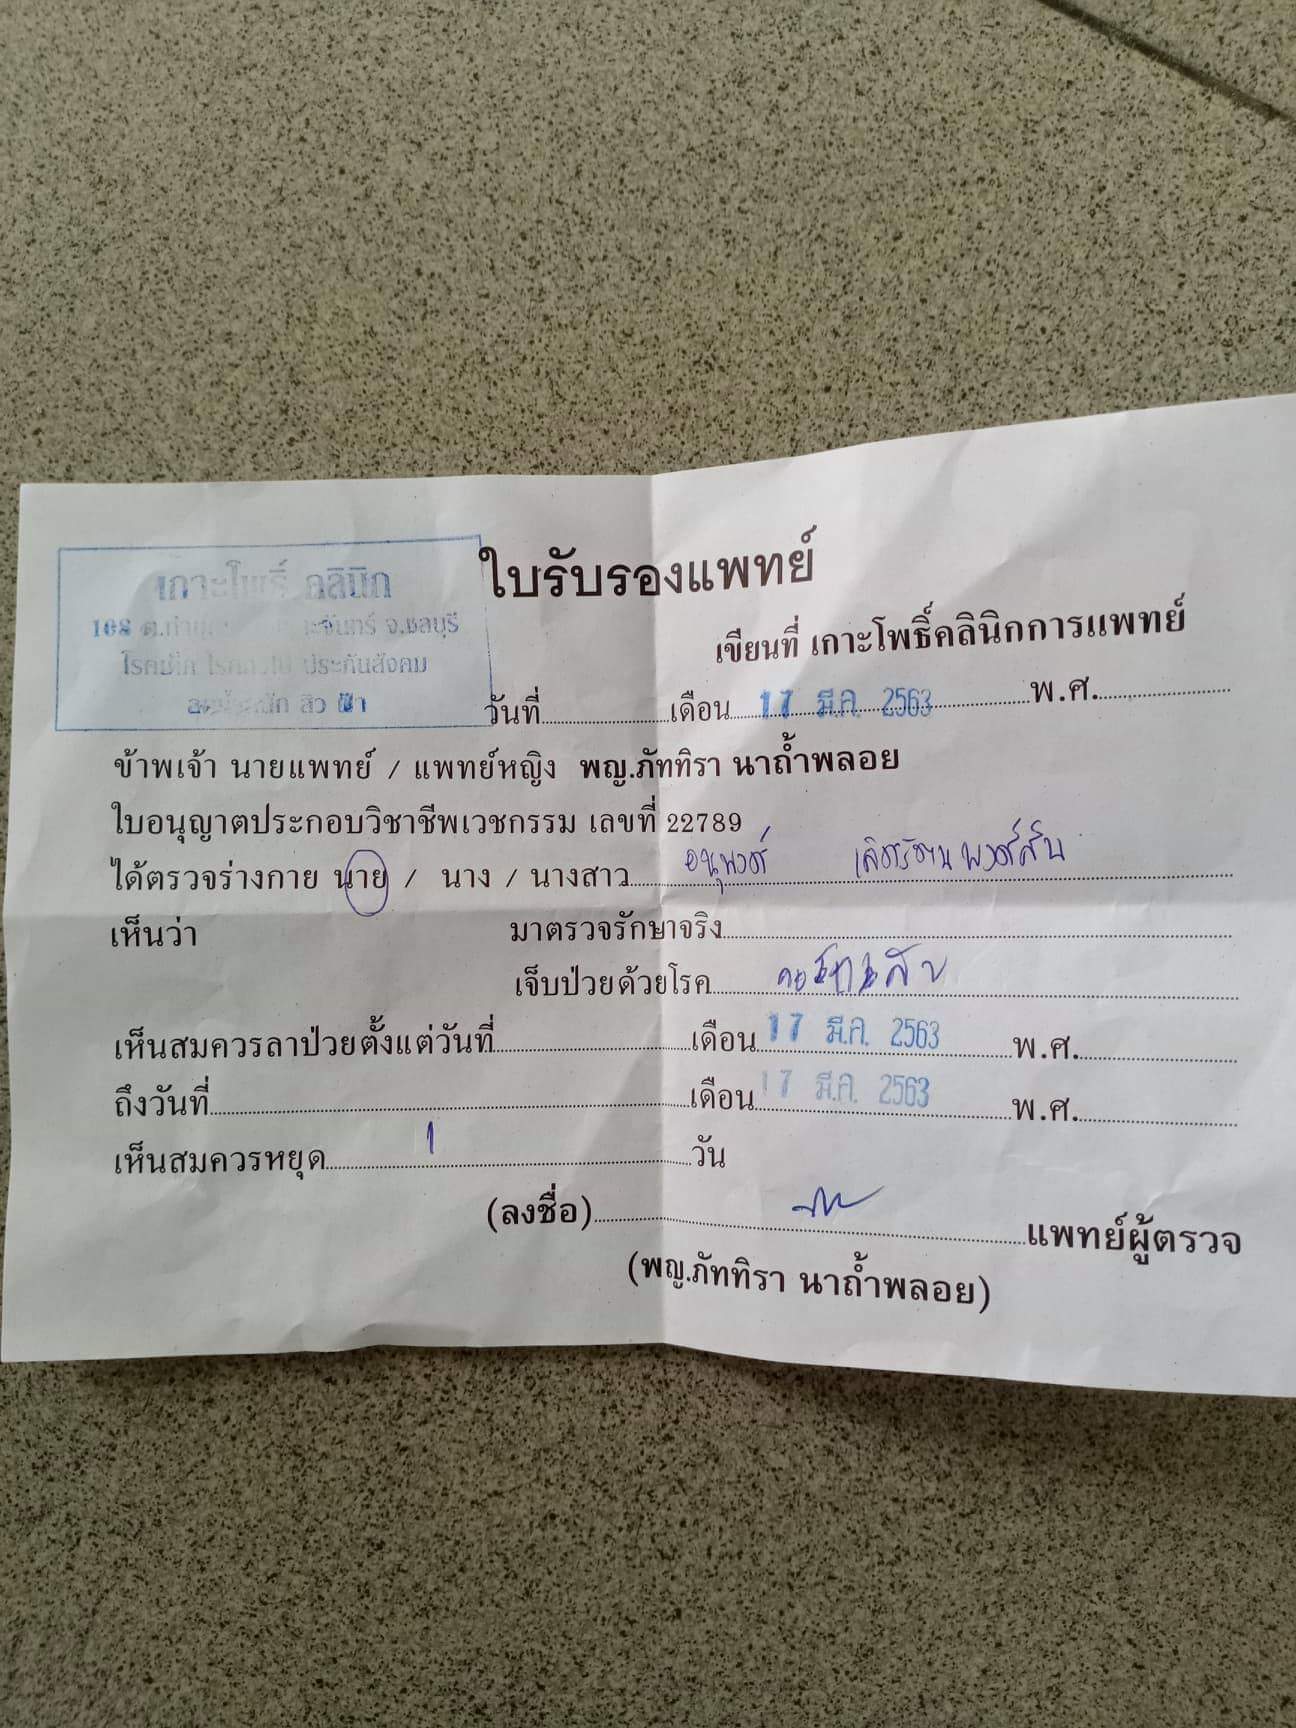 เกาะโพธิ์ คลินิก
108 จ.ชลบุรี
ประกันสังคม
สิว ฝ้า
ใบรับรองแพทย์
เขียนที่ เกาะโพธิ์คลินิกการแพทย์
วันที่ เดือน 17 มี.ค. 2563 พ.ศ.
ข้าพเจ้า นายแพทย์ / แพทย์หญิง พญ.ภัททิรา นาถ้ำพลอย
ใบอนุญาตประกอบวิชาชีพเวชกรรม เลขที่ 22789
ได้ตรวจร่างกาย นาย / นาง / นางสาว อนุพงศ์
เห็นว่า มาตรวจรักษาจริง
เจ็บป่วยด้วยโรค
เห็นสมควรลาป่วยตั้งแต่วันที่ เดือน 17 มี.ค. 2563 พ.ศ.
ถึงวันที่ เดือน 17 มี.ค. 2563 พ.ศ.
เห็นสมควรหยุด 1 วัน
(ลงชื่อ) แพทย์ผู้ตรวจ
(พญ.ภัททิรา นาถ้ำพลอย)